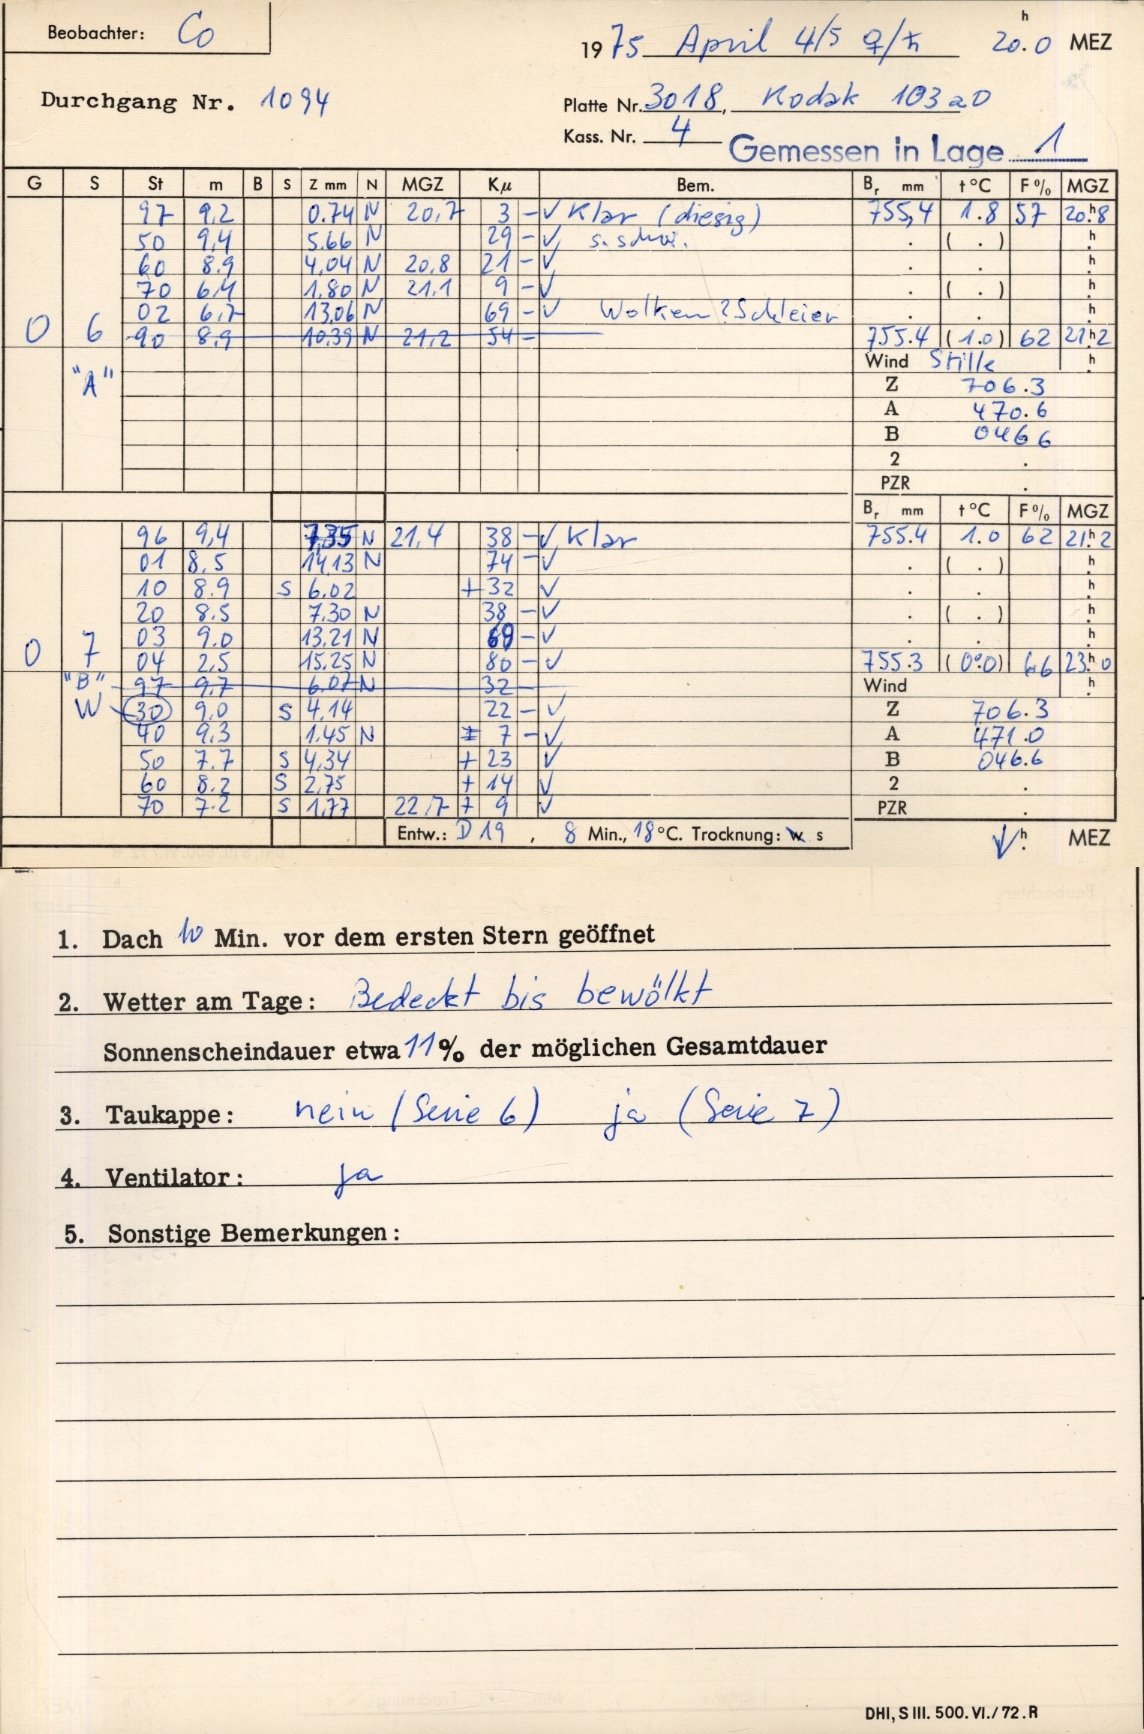 Beobachter: Co
1975 April 4/5 ♀/♄ 20.0 h MEZ
Durchgang Nr. 1094
Platte Nr. 3018, Kodak 103aO
Kass. Nr. 4
Gemessen in Lage 1
G S St m B S Z mm N MGZ Kμ Bem. Br mm t °C F % MGZ
97 9,2 0.74 N 20,7 3 – ✓ Klar (diesig) 755,4 1.8 57 20.h8
50 9,4 5.66 N 29 – ✓ s. schw. . ( . ) h
60 8.9 4,04 N 20,8 21 – ✓ . . h
70 6,4 1,80 N 21,1 9 – ✓ . ( . ) h
02 6,7 13,06 N 69 – ✓ Wolken? Schleier . . h
0 6 90 8,9 10,39 N 21,2 54 – 755.4 (1.0) 62 21.h2
"A" Wind Stille h
Z 706.3
A 470.6
B 0466
2 .
PZR .
Br mm t °C F % MGZ
96 9,4 7,35 N 21,4 38 – ✓ Klar 755.4 1.0 62 21.h2
01 8,5 14,13 N 74 – ✓ . ( . ) h
10 8.9 S 6.02 + 32 ✓ . . h
20 8.5 7,30 N 38 – ✓ . ( . ) h
03 9.0 13,21 N 69 – ✓ . . h
0 7 04 2,5 15,25 N 80 – ✓ 755.3 (0.0) 66 23.h0
"B" 97 9,7 6.07 N 32 – Wind h
W 30 9,0 S 4,14 22 – ✓ Z 706.3
40 9,3 1.45 N 7 – ✓ A 471.0
50 7.7 S 4,34 + 23 ✓ B 046.6
60 8,2 S 2,75 + 14 ✓ 2 .
70 7.2 S 1,77 22,7 + 9 ✓ PZR .
Entw.: D 19 , 8 Min., 18 °C. Trocknung: w s ✓ h MEZ
1. Dach 10 Min. vor dem ersten Stern geöffnet
2. Wetter am Tage: Bedeckt bis bewölkt
Sonnenscheindauer etwa 11 % der möglichen Gesamtdauer
3. Taukappe: nein (Serie 6) ja (Serie 7)
4. Ventilator: ja
5. Sonstige Bemerkungen:
DHI, S III. 500. VI./72. R